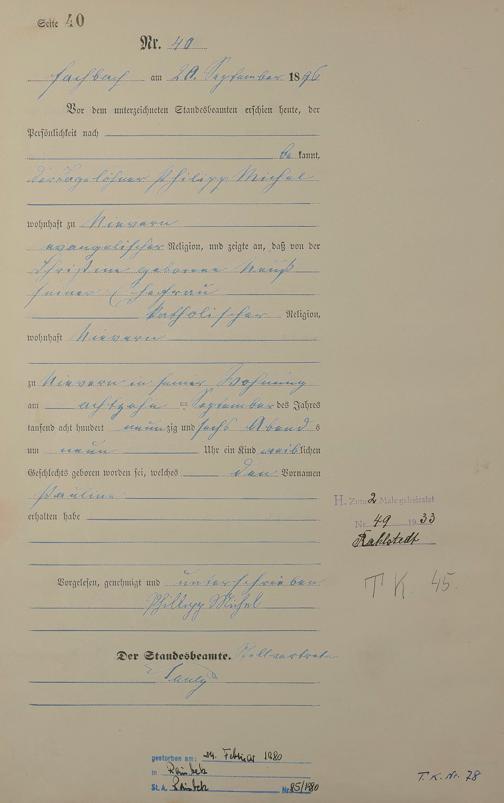 Seite 40
Nr. 40
Fachbach am 20. September 1896
Vor dem unterzeichneten Standesbeamten erschien heute, der
Persönlichkeit nach
be kannt,
der Tagelöhner Philipp Michel
wohnhaft zu Nievern
evangelischer Religion, und zeigte an, daß von der
Christine geborene
seiner Ehefrau
katholischer Religion,
wohnhaft Nievern
zu Nievern in seiner Wohnung
am achtzehn September des Jahres
tausend acht hundert neunzig und sechs Abends
um neun Uhr ein Kind weiblichen
Geschlechts geboren worden sei, welches den Vornamen
Pauline
erhalten habe
Vorgelesen, genehmigt und unterschrieben
Philipp Michel
Der Standesbeamte. Stellvertreter
Pauly
H. Zum 2 Male geheiratet
Nr. 49 1933
Rahlstedt
T K. 45.
gestorben am: 14. Februar 1980
in Reinbek
St. A. Reinbek Nr. 85/1980
T. K. Nr. 78